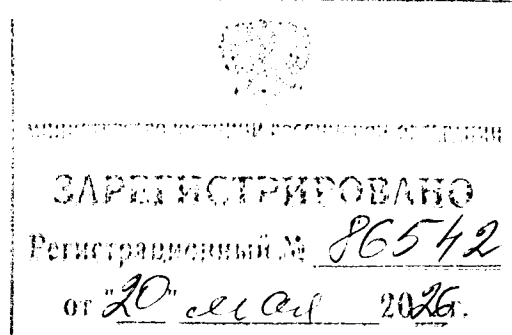 МИНИСТЕРСТВО ЮСТИЦИИ РОССИЙСКОЙ ФЕДЕРАЦИИ
ЗАРЕГИСТРИРОВАНО
Регистрационный № 86542
от "20" мая 2026г.